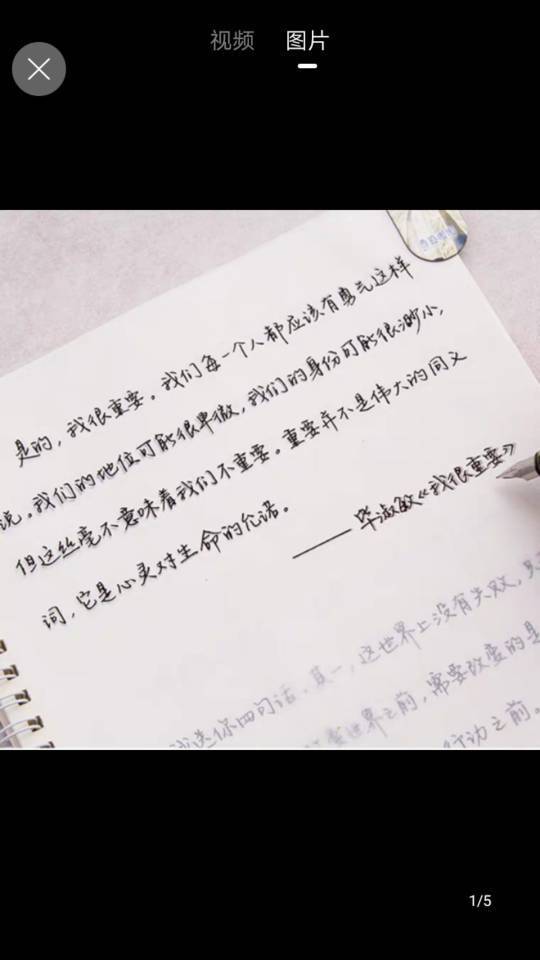 视频 图片
是的，我很重要。我们每一个人都应该有勇气这样
说。我们的地位可能很卑微，我们的身份可能很渺小，
但这丝毫不意味着我们不重要。重要并不是伟大的同义
词，它是心灵对生命的允诺。
——毕淑敏《我很重要》
送你四句话，其一，这世界上没有失败，只
世界之前，需要改变的是
行动之前。
1/5